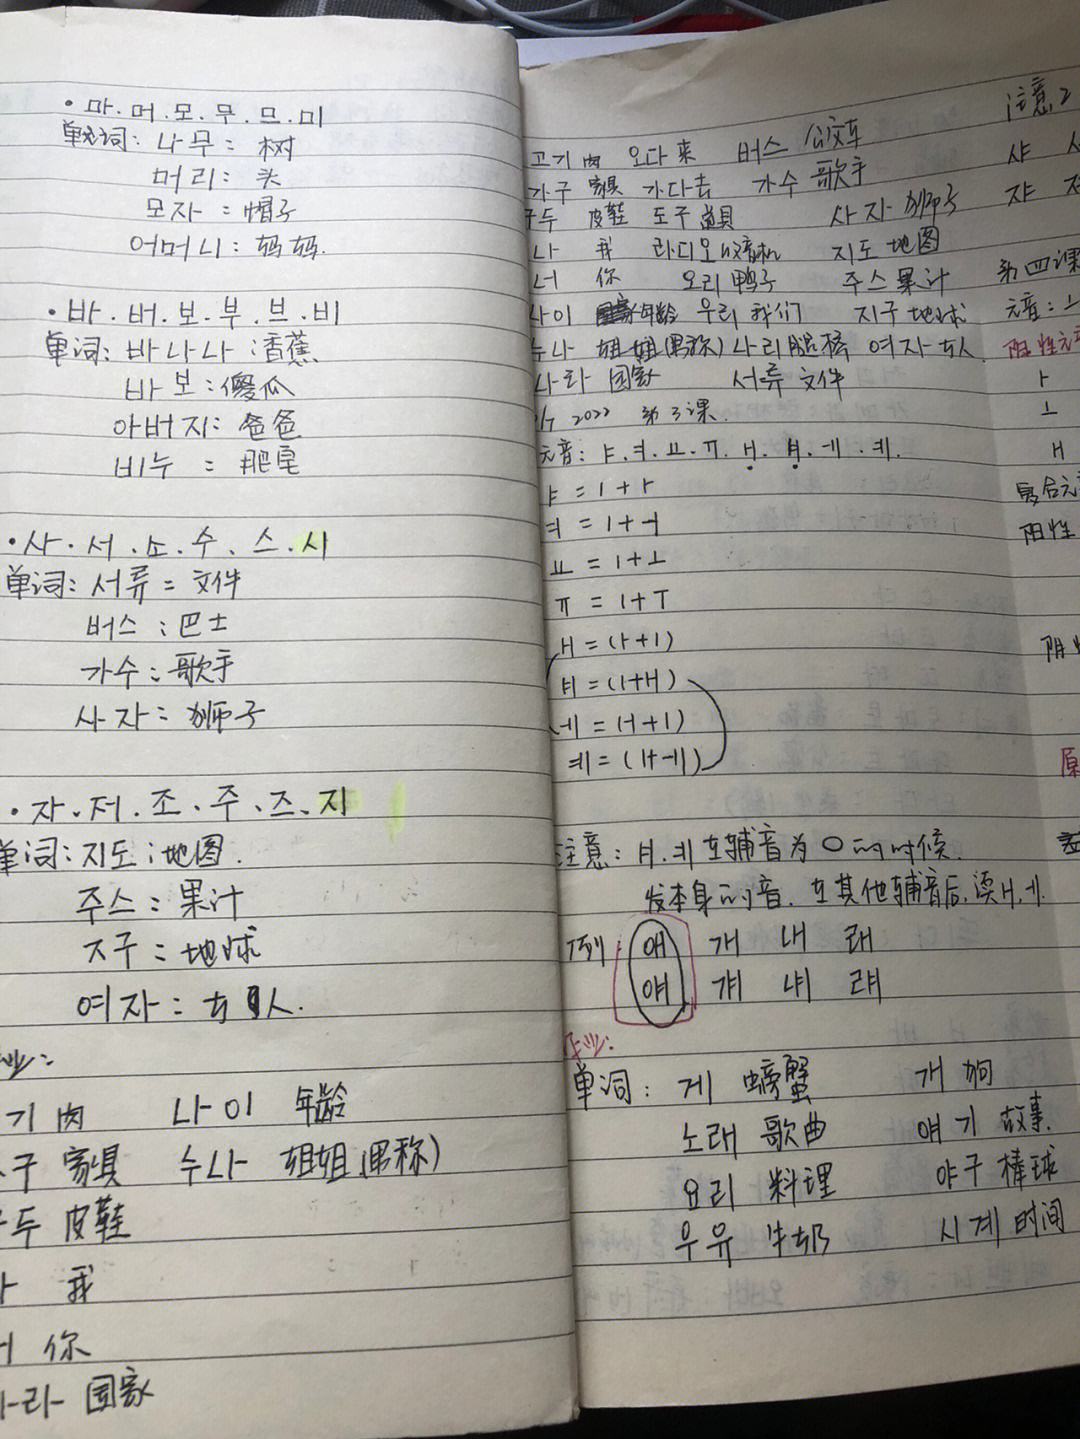 · 마 · 머 · 모 · 무 · 므 · 미
单词: 나무: 树
머리: 头
모자: 帽子
어머니: 妈妈.
· 바 · 버 · 보 · 부 · 브 · 비
单词: 바나나: 香蕉
바보: 傻瓜
아버지: 爸爸
비누: 肥皂
· 사 · 서 · 소 · 수 · 스 · 시
单词: 서류 = 文件
버스: 巴士
가수: 歌手
사자: 狮子
· 자 · 저 · 조 · 주 · 즈 · 지
单词: 지도: 地图.
주스: 果汁
지구: 地球
여자: 女人.
기 肉 나이 年龄
구 家具 누나 姐姐(男称)
구두 皮鞋
我
你
라 国家
注意2
고기 肉 오다 来 버스 公交车 샤
가구 家具 가다 去 가수 歌手 쟈
구두 皮鞋 도구 道具 사자 狮子
나 我 라디오 收音机 지도 地图
너 你 오리 鸭子 주스 果汁 第四课
나이 年龄 우리 我们 지구 地球 元音: ㅗ
누나 姐姐(男称) 다리 腿,桥 여자 女人. 阳性元
나라 国家 서류 文件 ㅏ
2022 第3课. ㅗ
元音: ㅑ.ㅕ.ㅛ.ㅠ.ㅐ.ㅒ.ㅔ.ㅖ. ㅐ
ㅑ = ㅣ+ㅏ 复合元
ㅕ = ㅣ+ㅓ 阳性
ㅛ = ㅣ+ㅗ
ㅠ = ㅣ+ㅜ
ㅐ = (ㅏ+ㅣ) 阴
ㅒ = (ㅣ+ㅐ)
ㅔ = (ㅓ+ㅣ)
ㅖ = (ㅣ+ㅔ) 原
注意: ㅒ.ㅖ在辅音为ㅇ的时候.
发本身的音. 在其他辅音后,读ㅐ,ㅔ.
例 애 개 내 래
얘 걔 냬 럐
作业:
单词: 게 螃蟹 개 狗
노래 歌曲 얘기 故事
요리 料理 야구 棒球
우유 牛奶 시계 时间